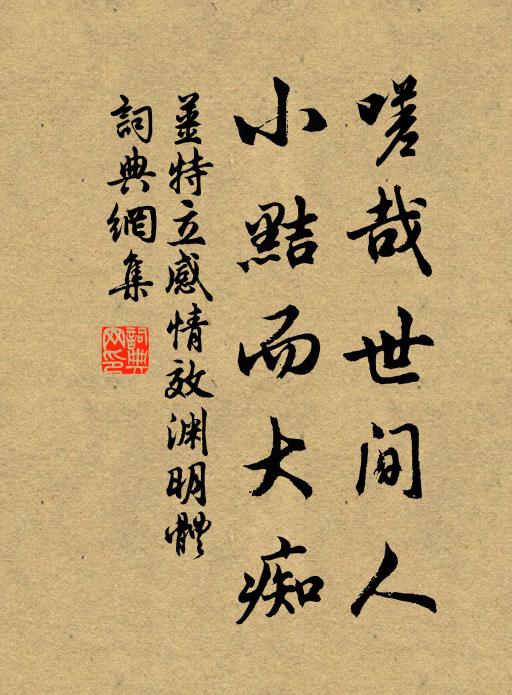 嗟哉世间人
小黠而大痴
姜特立感情效渊明體
詞典網集
詞典网印